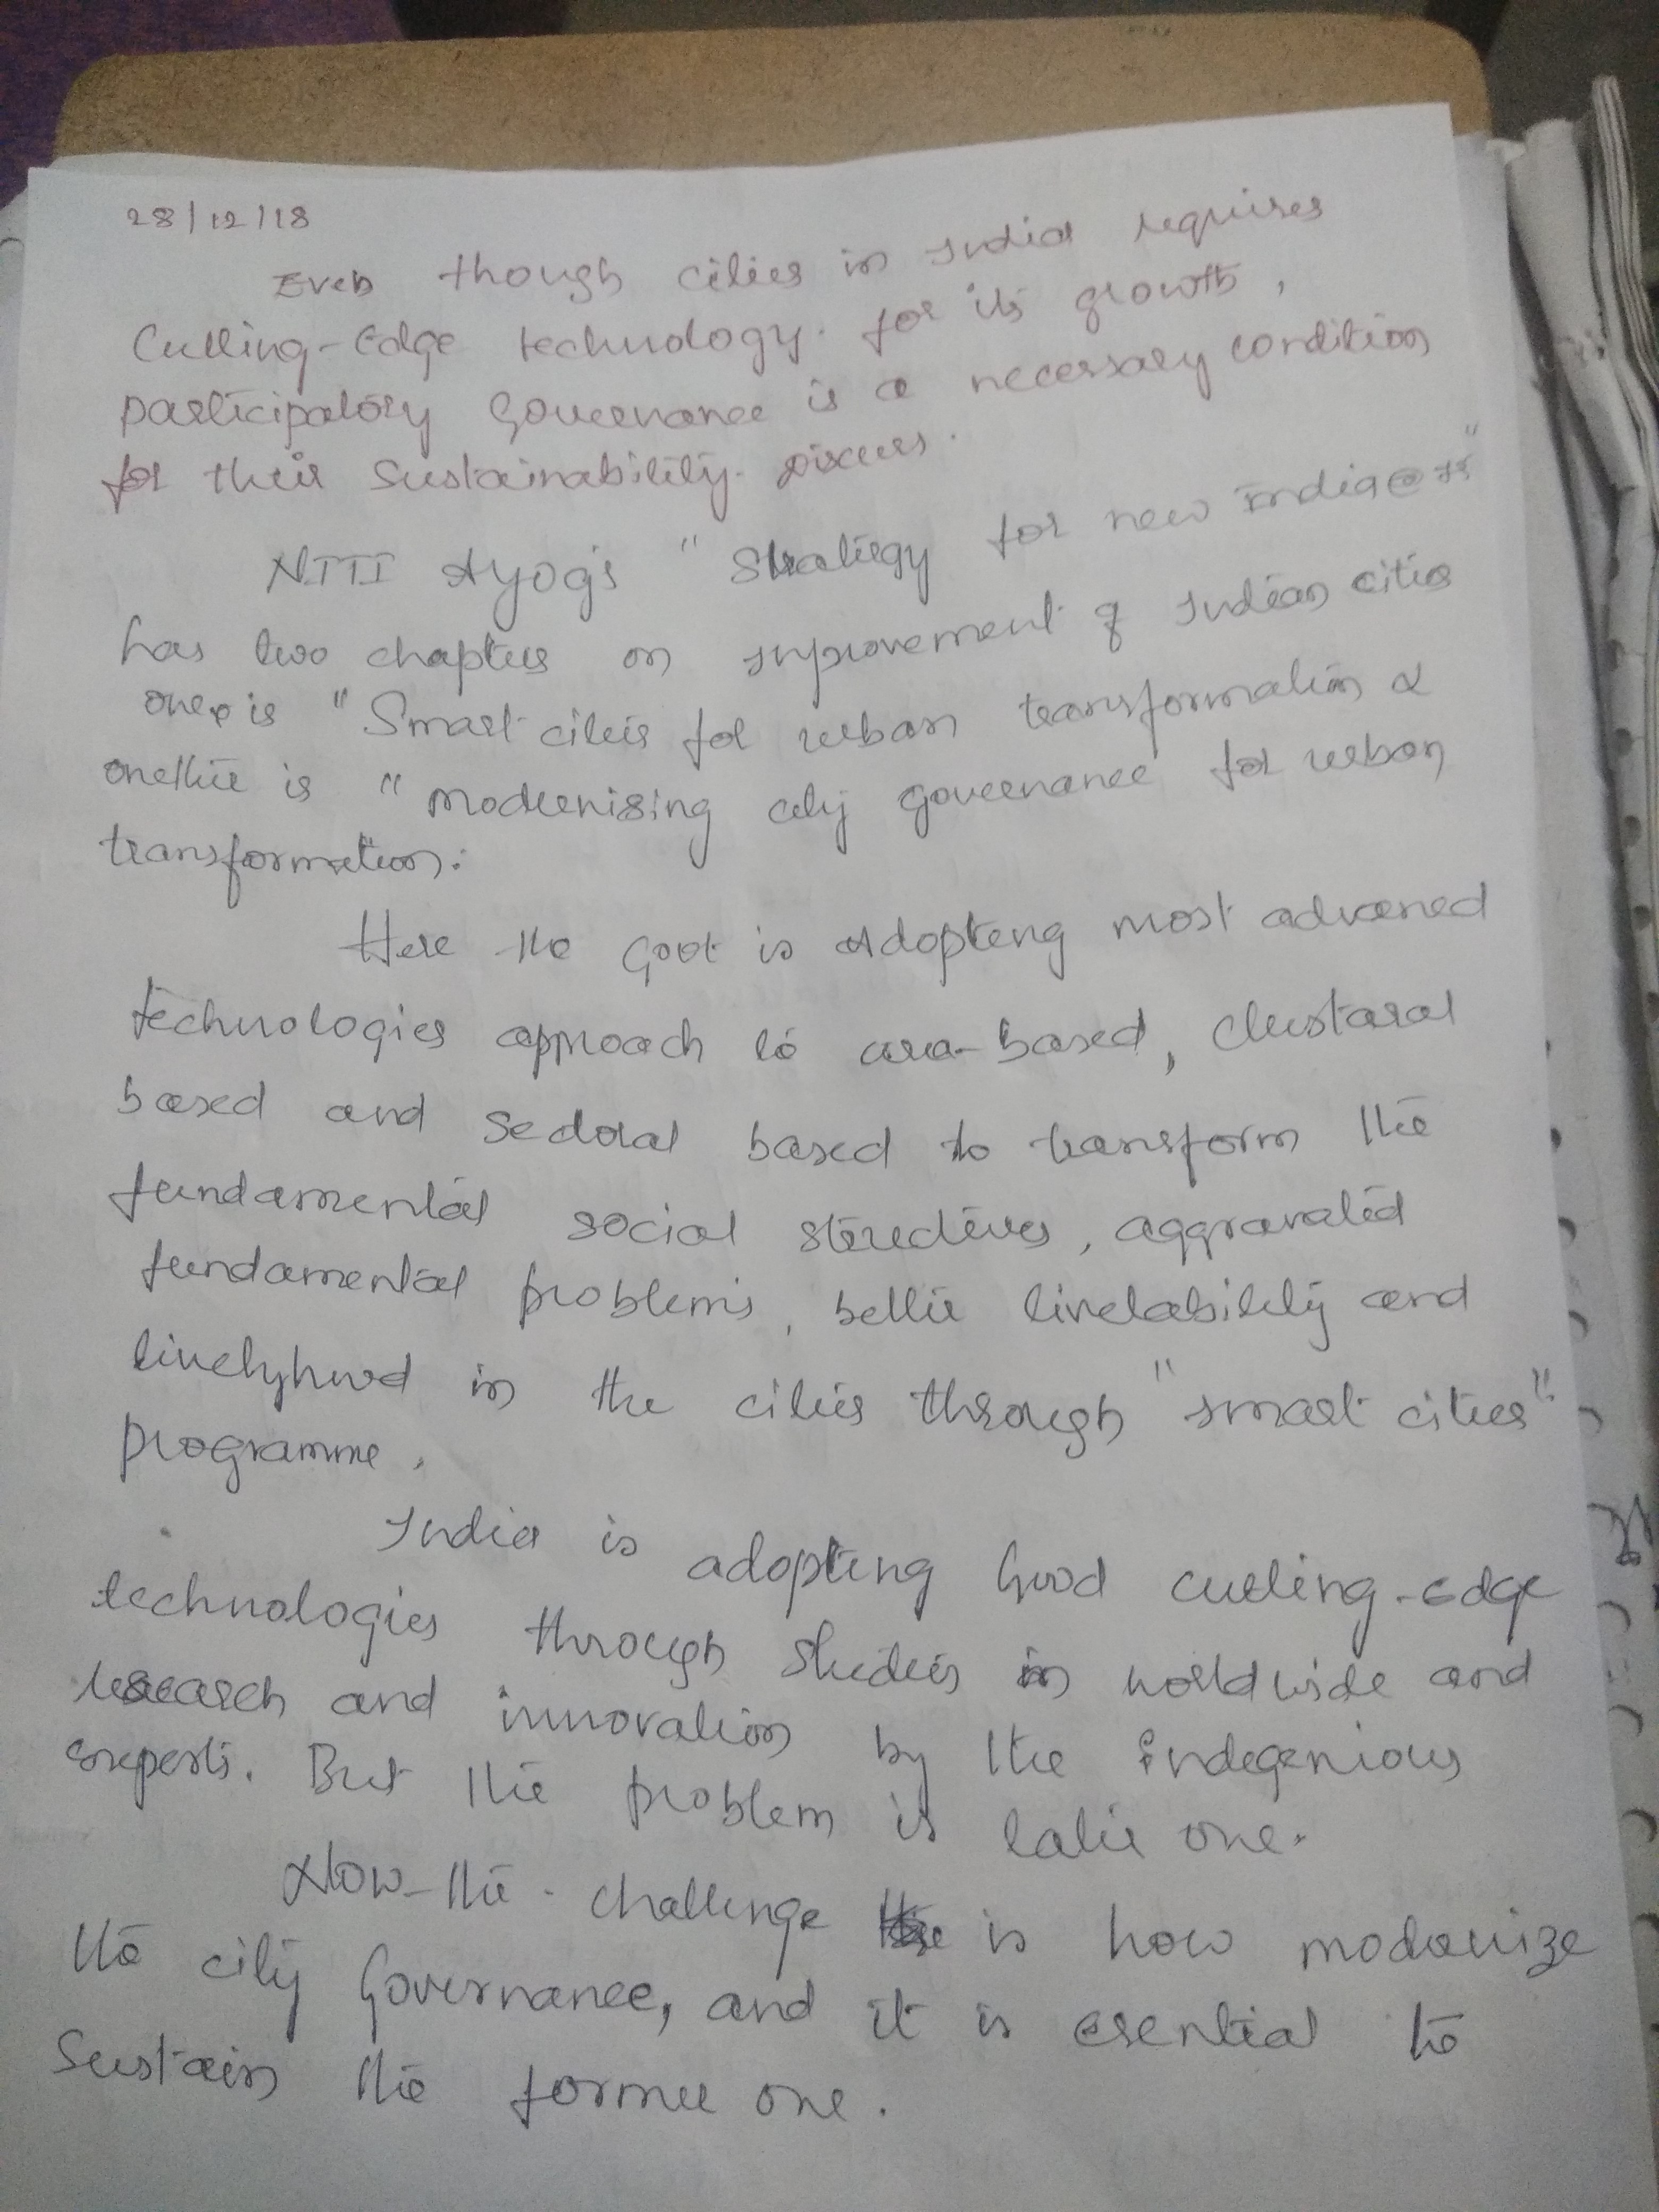 28/12/18
Even though cities in India requires
Cutting-Edge technology. for its growth,
participatory Governance is a necessary condition
for their Sustainability. Discuss.
NITI Ayog's "Strategy for new India@75"
has two chapters on improvement of Indian cities
one is "Smart cities for urban transformation &
onether is "modernising city governance for urban
transformation.
Here the Govt is Adopting most advanced
technologies approach to area-based, clustaral
based and sectoral based to transform the
fundamental social structures, aggravated
fundamental problems, better livelability and
livelyhood in the cities through "smart cities".
programme.
India is adopting Good cutting-edge
technologies through studies in worldwide and
research and innovation by the indegenious
experts. But the problem is later one.
Now the challenge is how modernize
the city Governance, and it is esential to
Sustain the former one.